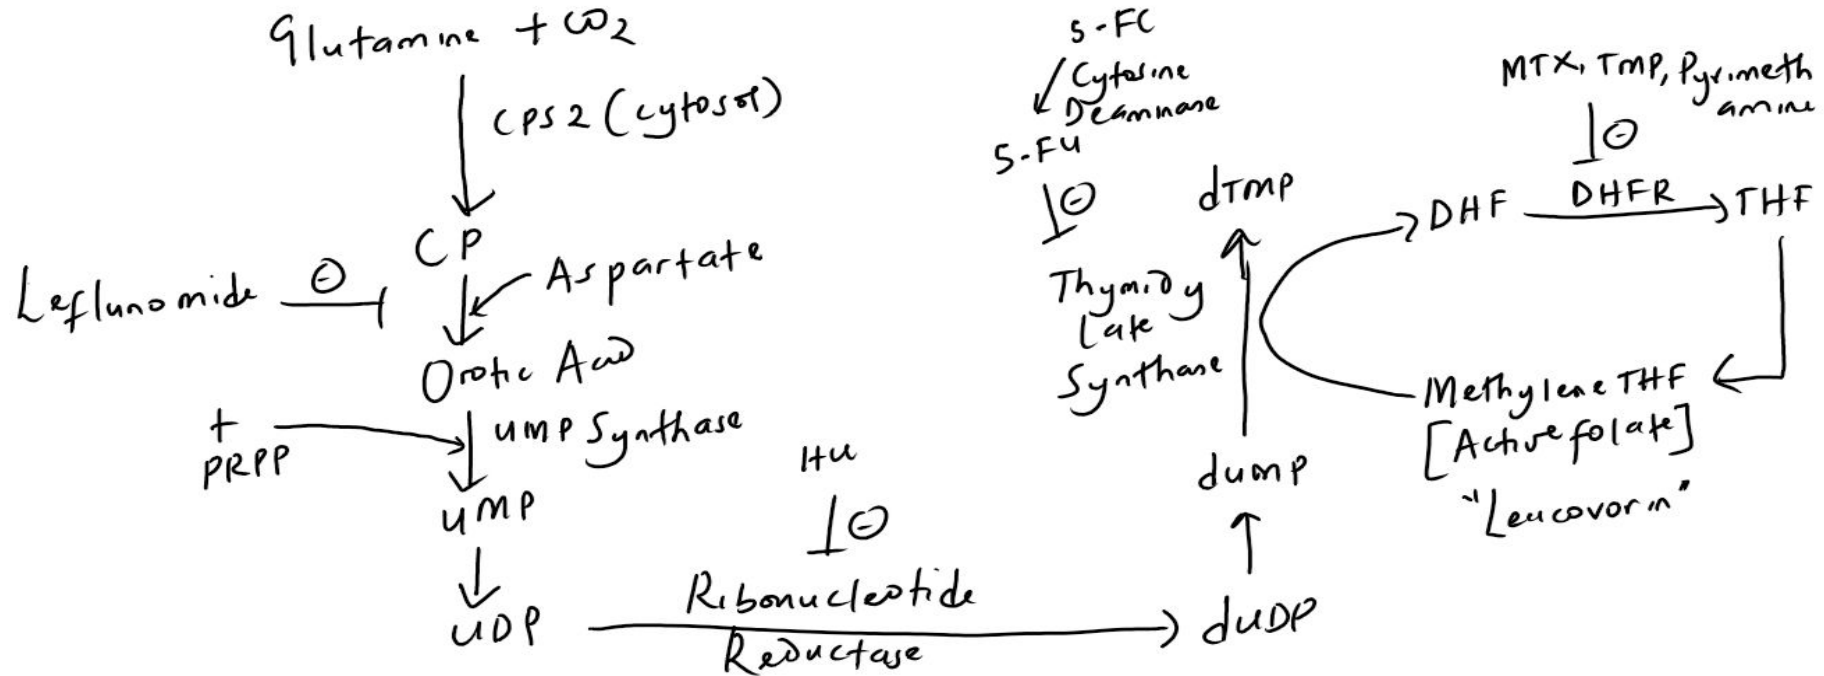 Glutamine + CO2
CPS2 (cytosol)
CP
Aspartate
Leflunomide ⊖
Orotic Acid
+
PRPP
UMP Synthase
UMP
UDP
HU
⊖
Ribonucleotide
Reductase
dUDP
dump
dTMP
5-FC
Cytosine
Deaminase
5-FU
⊖
Thymidy
late
Synthase
MTX, TMP, Pyrimeth
amine
⊖
DHF
DHFR
THF
Methylene THF
[Active folate]
"Leucovorin"